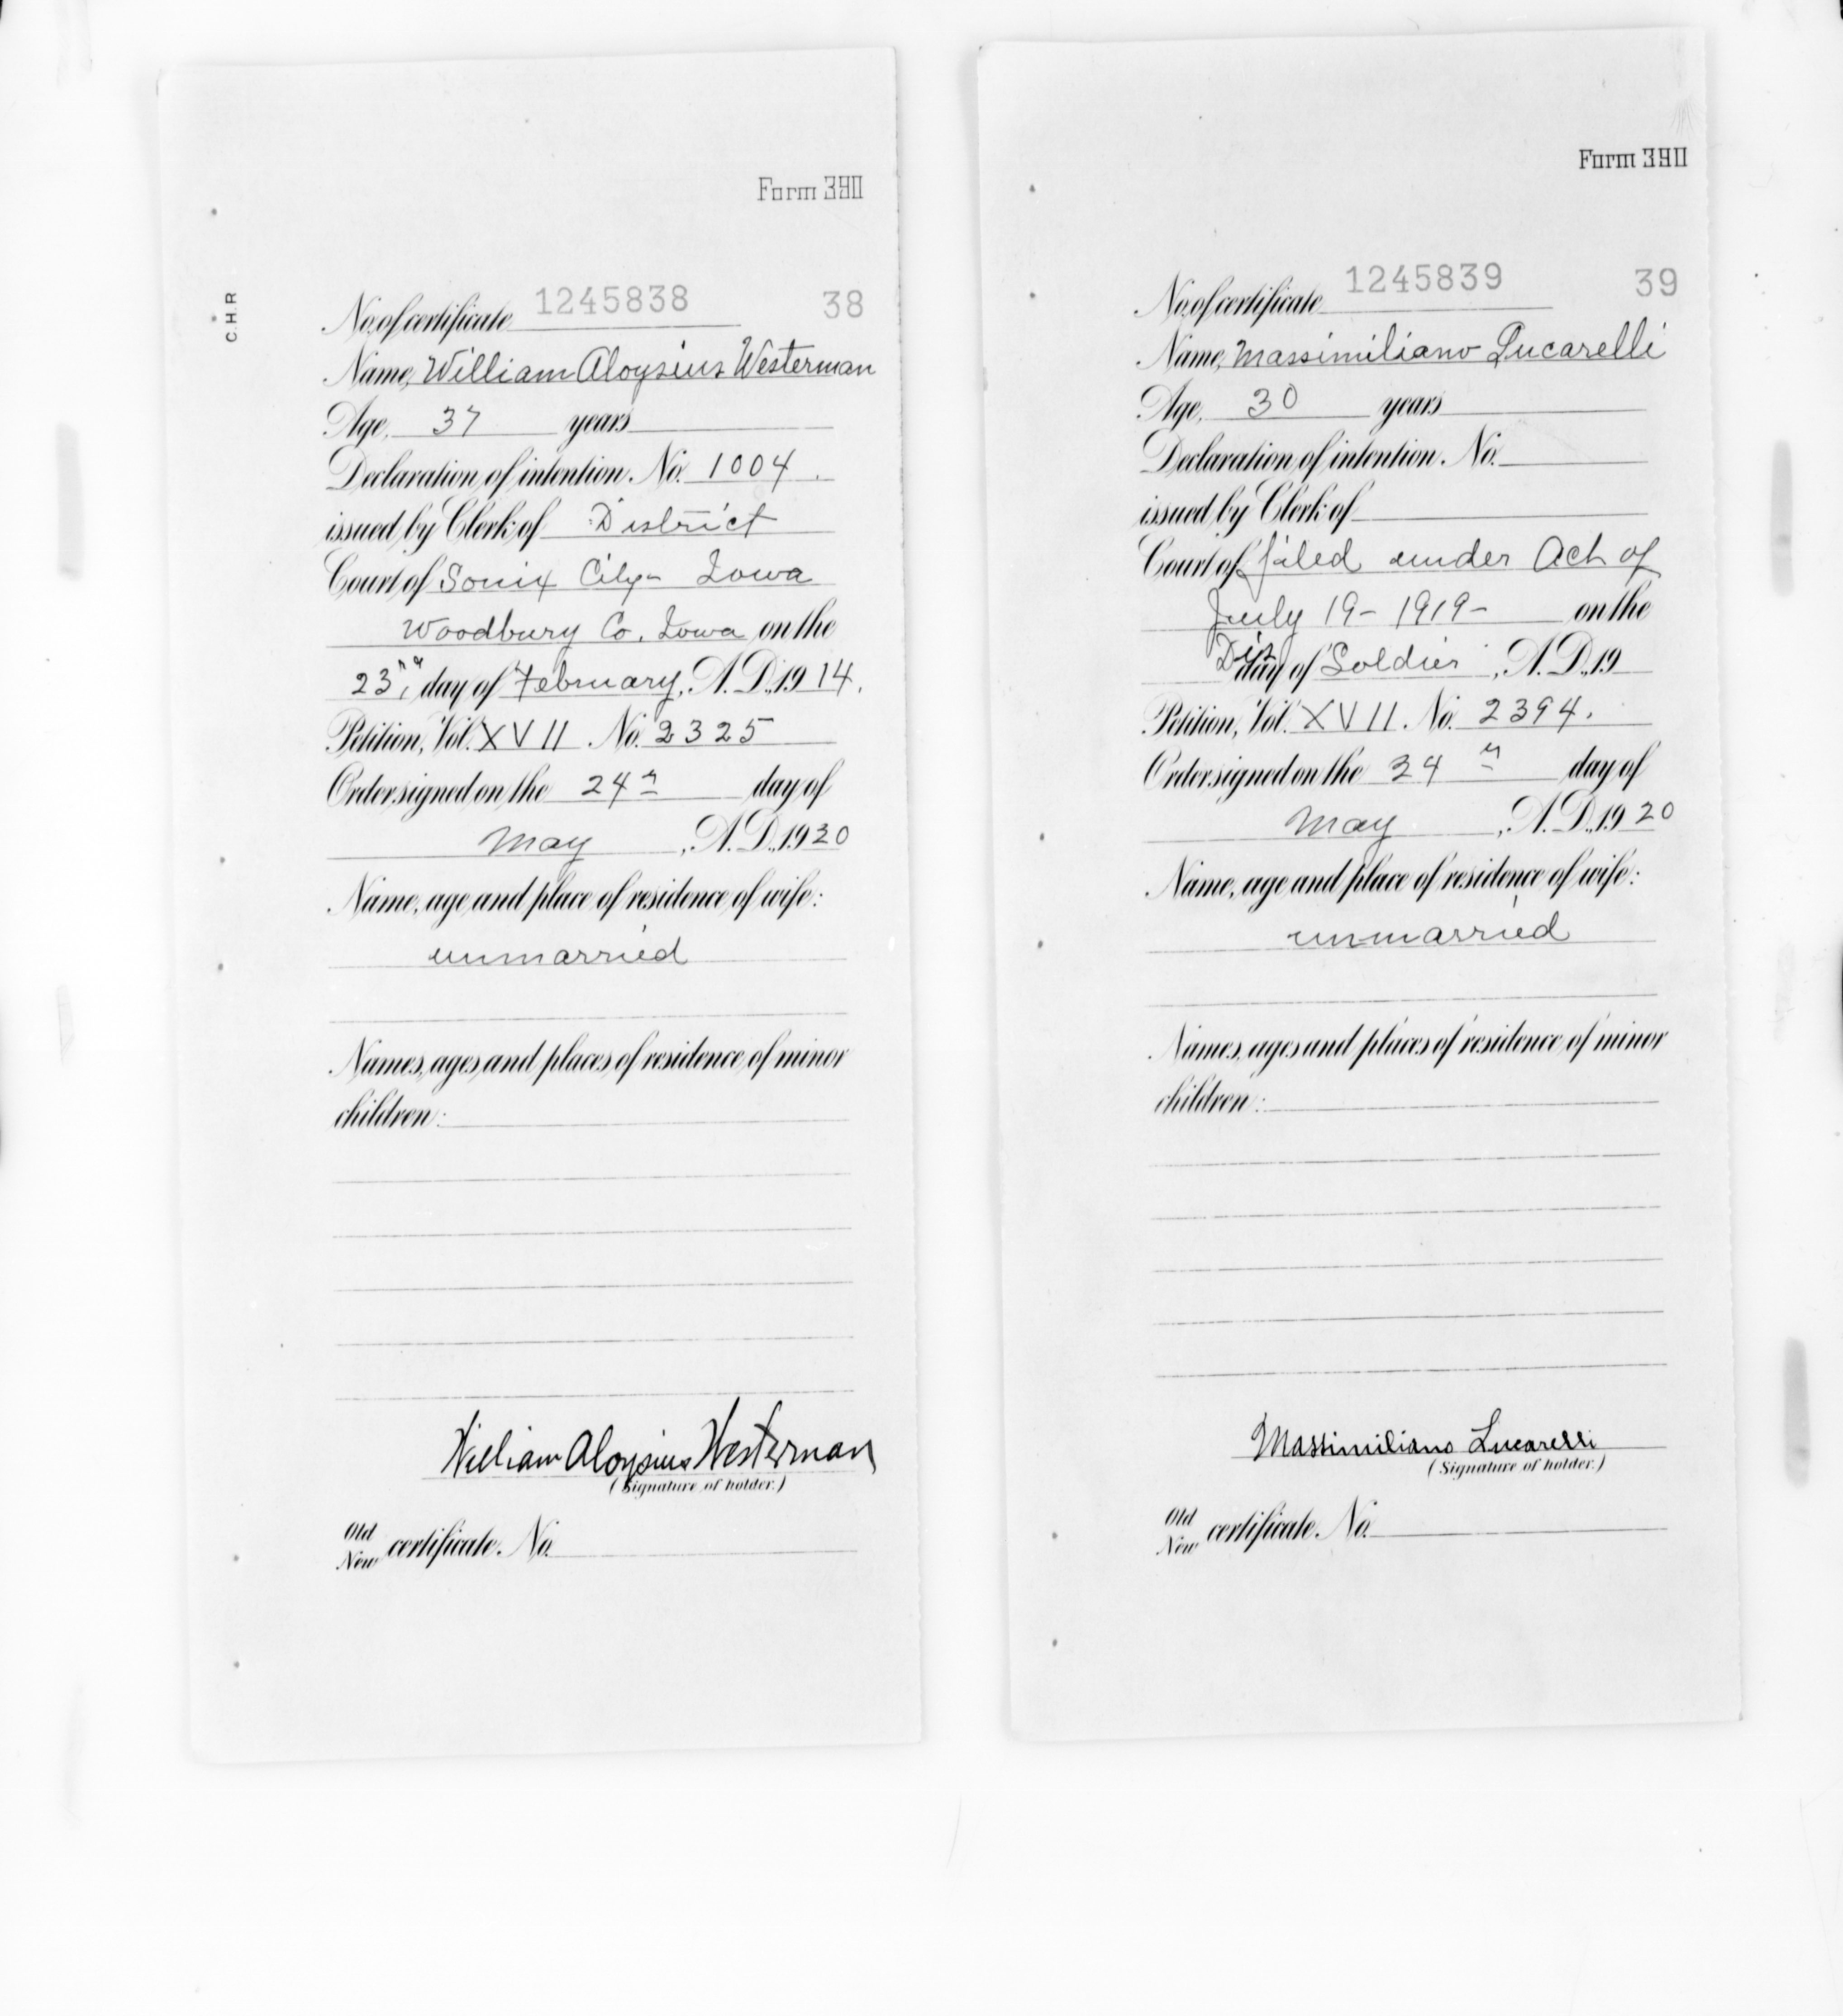 Form 390
C.H.R
No. of certificate 1245838 38
Name, William Aloysius Westerman
Age, 37 years
Declaration of intention. No. 1004.
issued by Clerk of District
Court of Souix City - Iowa
Woodbury Co, Iowa on the
23rd day of February, A.D., 1914.
Petition, Vol. XVII. No. 2325
Order signed on the 24th day of
May, A.D., 1920
Name, age and place of residence of wife:
unmarried
Names, ages and places of residence of minor
children:
William Aloysius Westerman
(Signature of holder.)
Old
New certificate. No.
Form 390
No. of certificate 1245839 39
Name, Massimiliano Lucarelli
Age, 30 years
Declaration of intention. No.
issued by Clerk of
Court of filed under Act of
July 19 - 1919 - on the
Dis day of Soldier, A.D., 19
Petition, Vol. XVII. No. 2394.
Order signed on the 24th day of
May, A.D., 1920
Name, age and place of residence of wife:
unmarried
Names, ages and places of residence of minor
children:
Massimiliano Lucarelli
(Signature of holder.)
Old
New certificate. No.